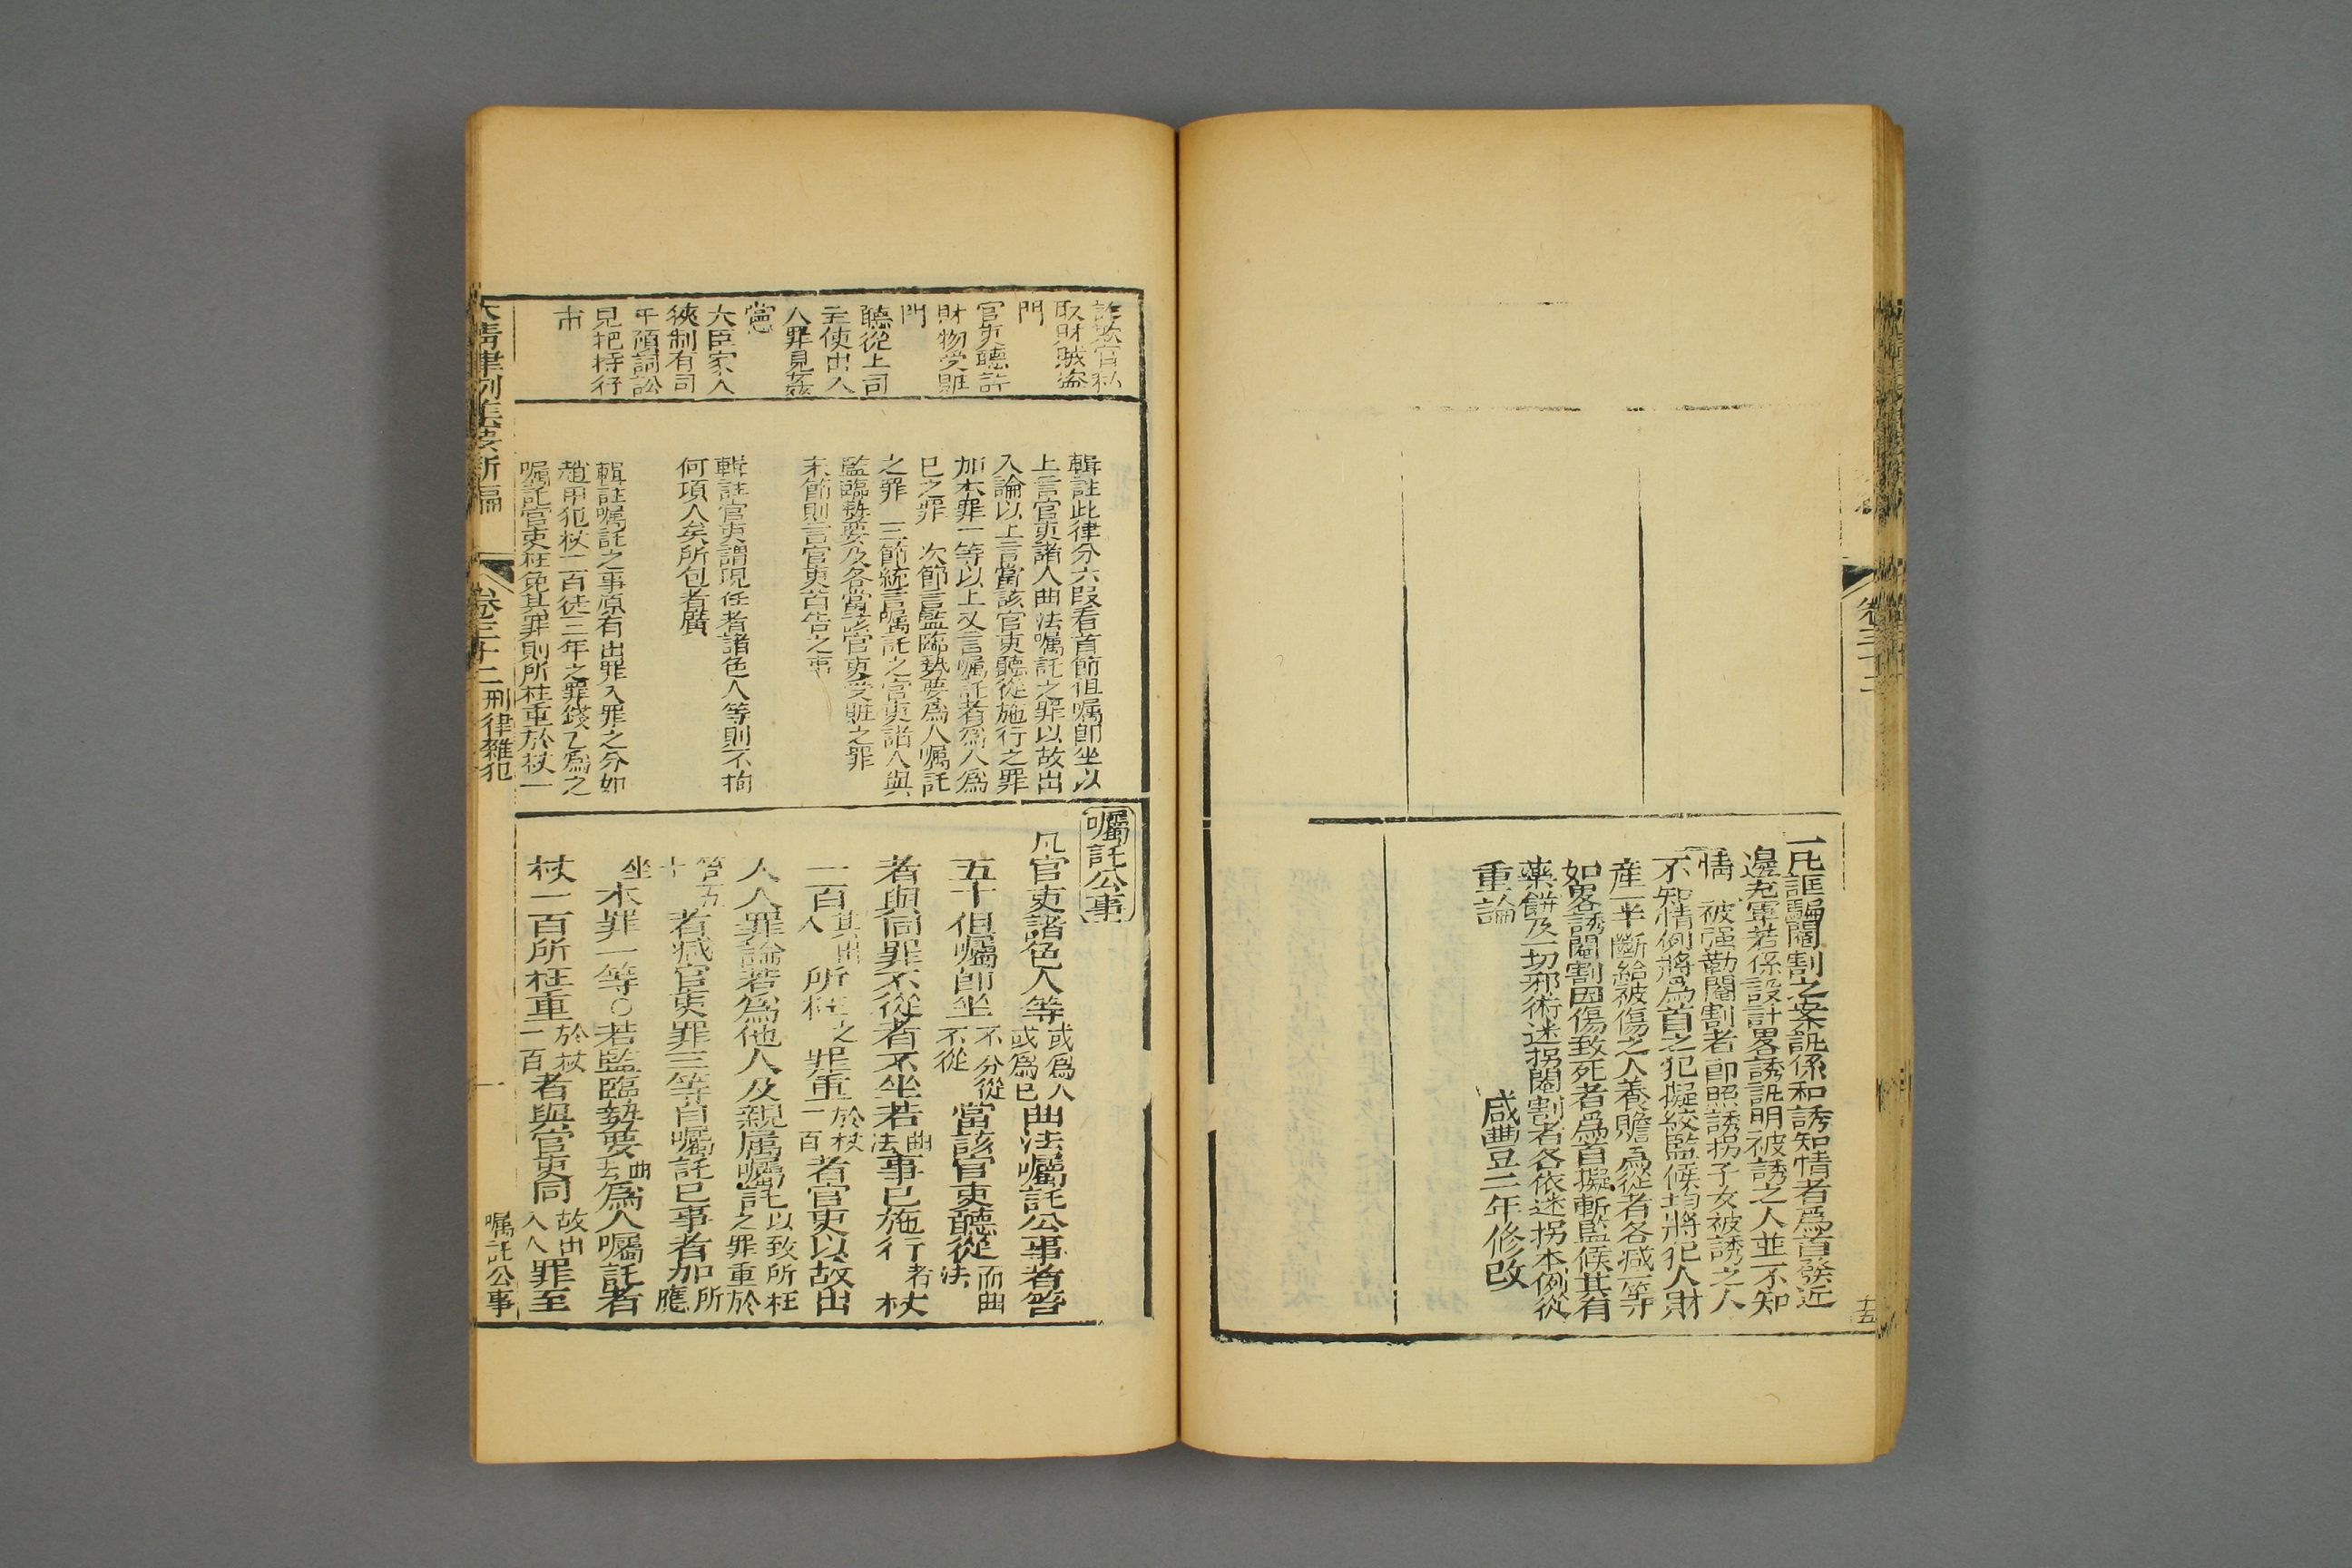 一凡誆騙閹割之案訊係和誘知情者爲首發近
邊充軍若係設計畧誘訊明被誘之人並不知
情被强勒閹割者卽照誘拐子女被誘之人
不知情例將爲首之犯擬絞監候均將犯人財
産一半斷給被傷之人養贍爲從者各减一等
如畧誘閹割因傷致死者爲首擬斬監候其有
藥餅及一切邪術迷拐閹割者各依迷拐本例從
重論
咸豐二年修改
卷三十二
十五
詐欺官私
取財賊盗
門
官吏聽許
財物受賍
門
聽從上司
主使出入
人罪見姦
黨
大臣家人
挾制有司
干預詞訟
見把持行
市
輯註此律分六段看首節但嘱卽坐以
上言官吏諸人曲法嘱託之罪以故出
入論以上言當該官吏聽從施行之罪
加本罪一等以上又言嘱託者爲人爲
已之罪 次節言監臨勢要爲人嘱託
之罪 三節統言嘱託之官吏諸人與
監臨勢要及各當該官吏受賍之罪
末節則言官吏首告之事
輯註官吏謂現任者諸色人等則不拘
何項人矣所包者廣
輯註嘱託之事原有出罪入罪之分如
趙甲犯杖一百徒三年之罪錢乙爲之
嘱託官吏枉免其罪則所枉重於杖一
囑託公事
凡官吏諸色人等或爲人或爲已曲法囑託公事者笞
五十但囑卽坐不分從不從當該官吏聽從而曲法
者與同罪不從者不坐若曲法事已施行者杖
一百其出入所枉之罪重於杖一百者官吏以故出
入人罪論若爲他人及親属囑託以致所枉之罪重於
笞五十者减官吏罪三等自囑託已事者加所應
坐本罪一等○若監臨勢要曲法爲人囑託者
杖一百所枉重於杖一百者與官吏同故出入人罪至
大清律例集要新編
卷三十二
刑律雜犯
一
嘱託公事